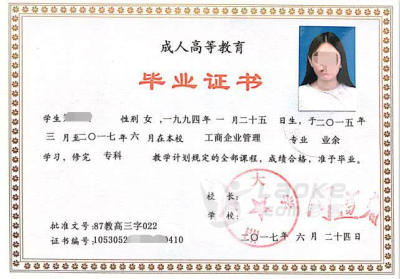 成人高等教育
毕业证书
学生 性别 女，一九九四年 一 月二十五 日生，于二〇一五年
三 月至二〇一七年 六 月在本校 工商企业管理 专业 业余
学习，修完 专科 教学计划规定的全部课程，成绩合格，准予毕业。
校长：
学校：
大
批准文号：87教高三字022
证书编号：1053052 0410
二〇一七年 六 月 二十四日